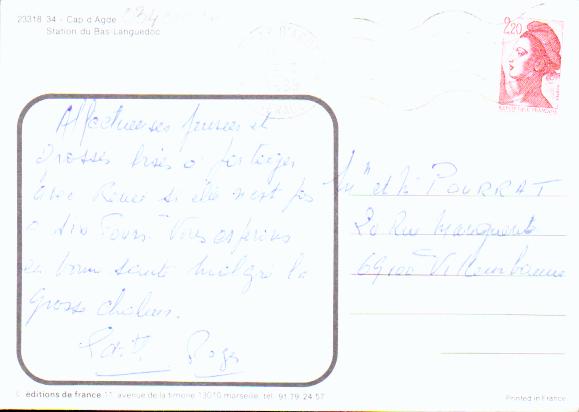 23318 34 - Cap d'Agde
Station du Bas-Languedoc
2,20
REPUBLIQUE FRANÇAISE
Affectueuses pensées et
Grosses bises à partager
avec Renée si elle n'est pas
à six Fours. Vous espérons
en bonne santé malgré la
grosse chaleur.
Roger
Mr et Me POURRAT
20 Rue Marguerite
69100 Villeurbanne
éditions de france 11, avenue de la timone 13010 marseille, tél. 91.79.24.57
Printed in France